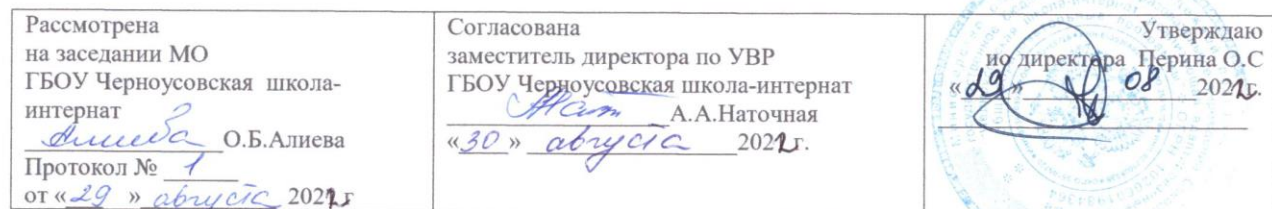 Рассмотрена
на заседании МО
ГБОУ Черноусовская школа-
интернат
Алиева О.Б.Алиева
Протокол № 1
от «29» августа 2022 г
Согласована
заместитель директора по УВР
ГБОУ Черноусовская школа-интернат
А.А.Наточная
«30» августа 2022 г.
Утверждаю
ио директора Перина О.С
«29» 08 2022 г.